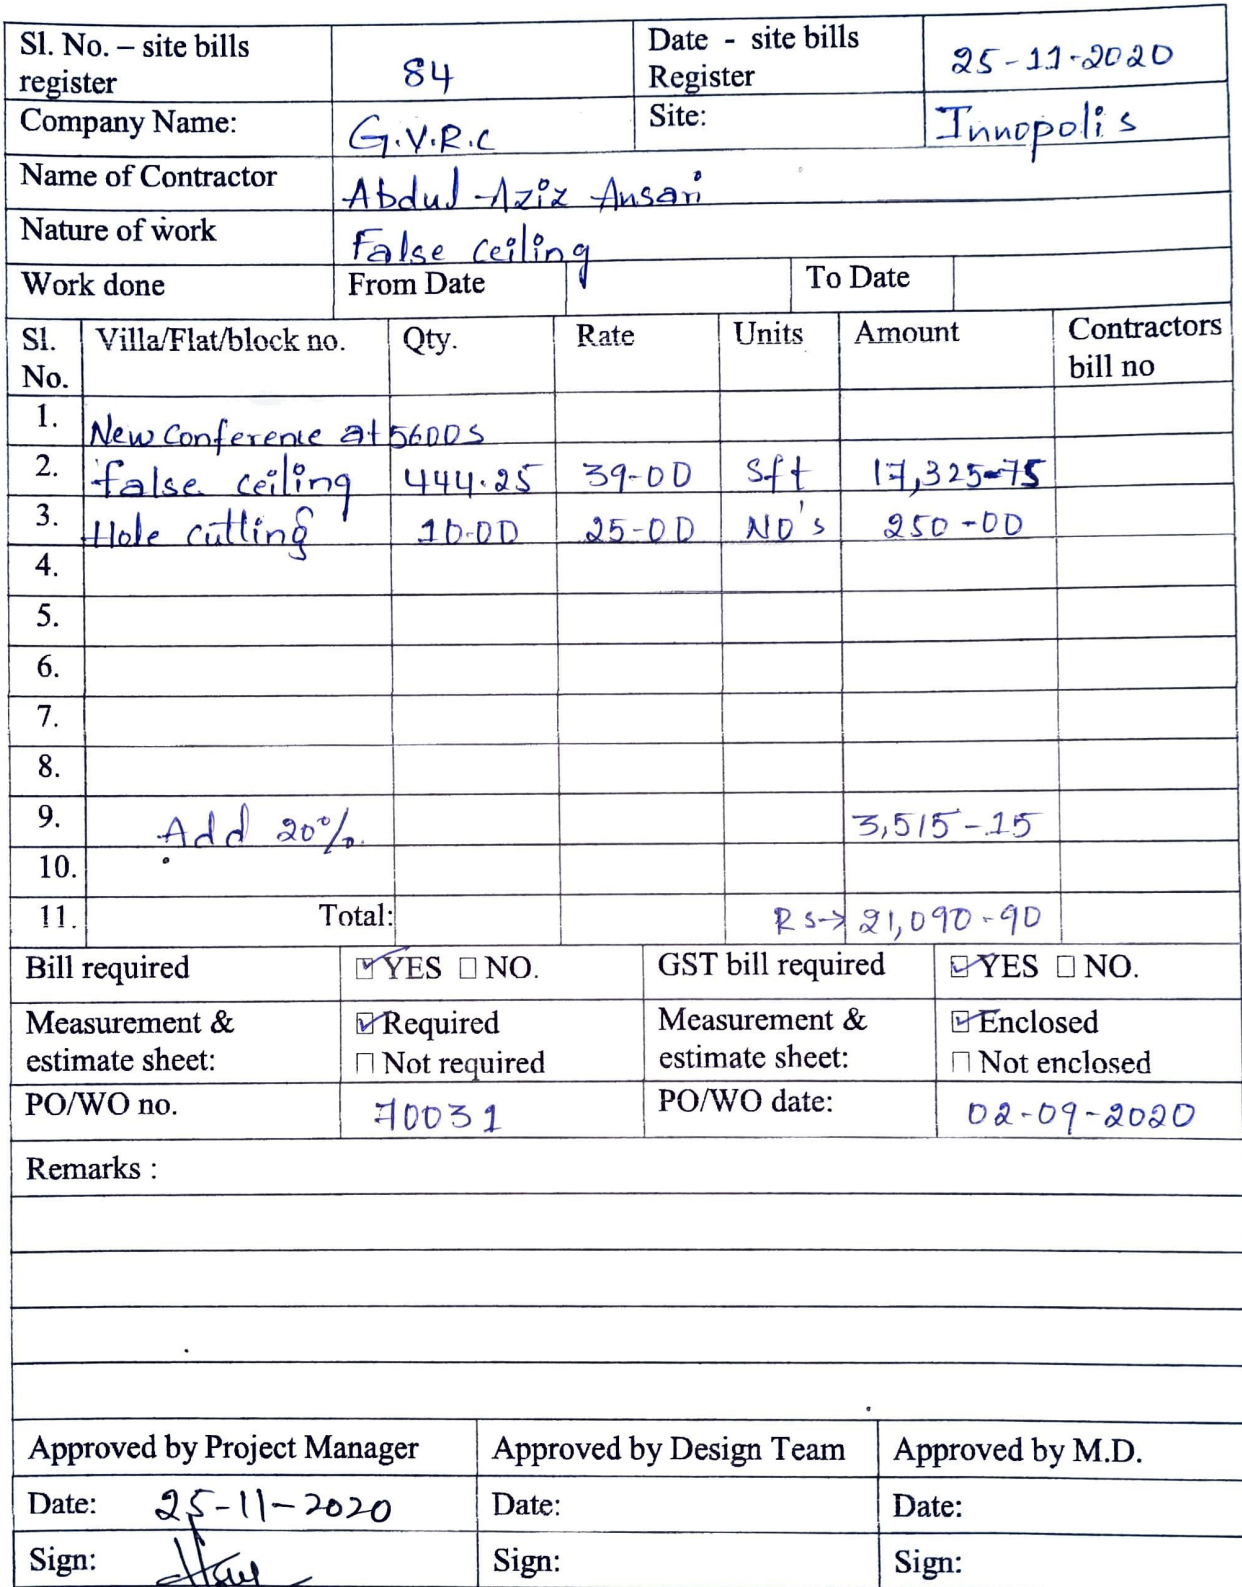 Sl. No. – site bills register 84 Date - site bills Register 25-11-2020
Company Name: G.V.R.C Site: Innopolis
Name of Contractor Abdul Aziz Ansari
Nature of work False ceiling
Work done From Date To Date
Sl. No. Villa/Flat/block no. Qty. Rate Units Amount Contractors bill no
1. New Conference at 5600S
2. false ceiling 444.25 39-00 Sft 17,325-75
3. Hole cutting 10-00 25-00 NO's 250-00
4.
5.
6.
7.
8.
9. Add 20% 3,515-15
10.
11. Total: Rs→ 21,090-90
Bill required ☑ YES ☐ NO. GST bill required ☑ YES ☐ NO.
Measurement & estimate sheet: ☑ Required ☐ Not required Measurement & estimate sheet: ☑ Enclosed ☐ Not enclosed
PO/WO no. 70031 PO/WO date: 02-09-2020
Remarks :
Approved by Project Manager Approved by Design Team Approved by M.D.
Date: 25-11-2020 Date: Date:
Sign: Sign: Sign: